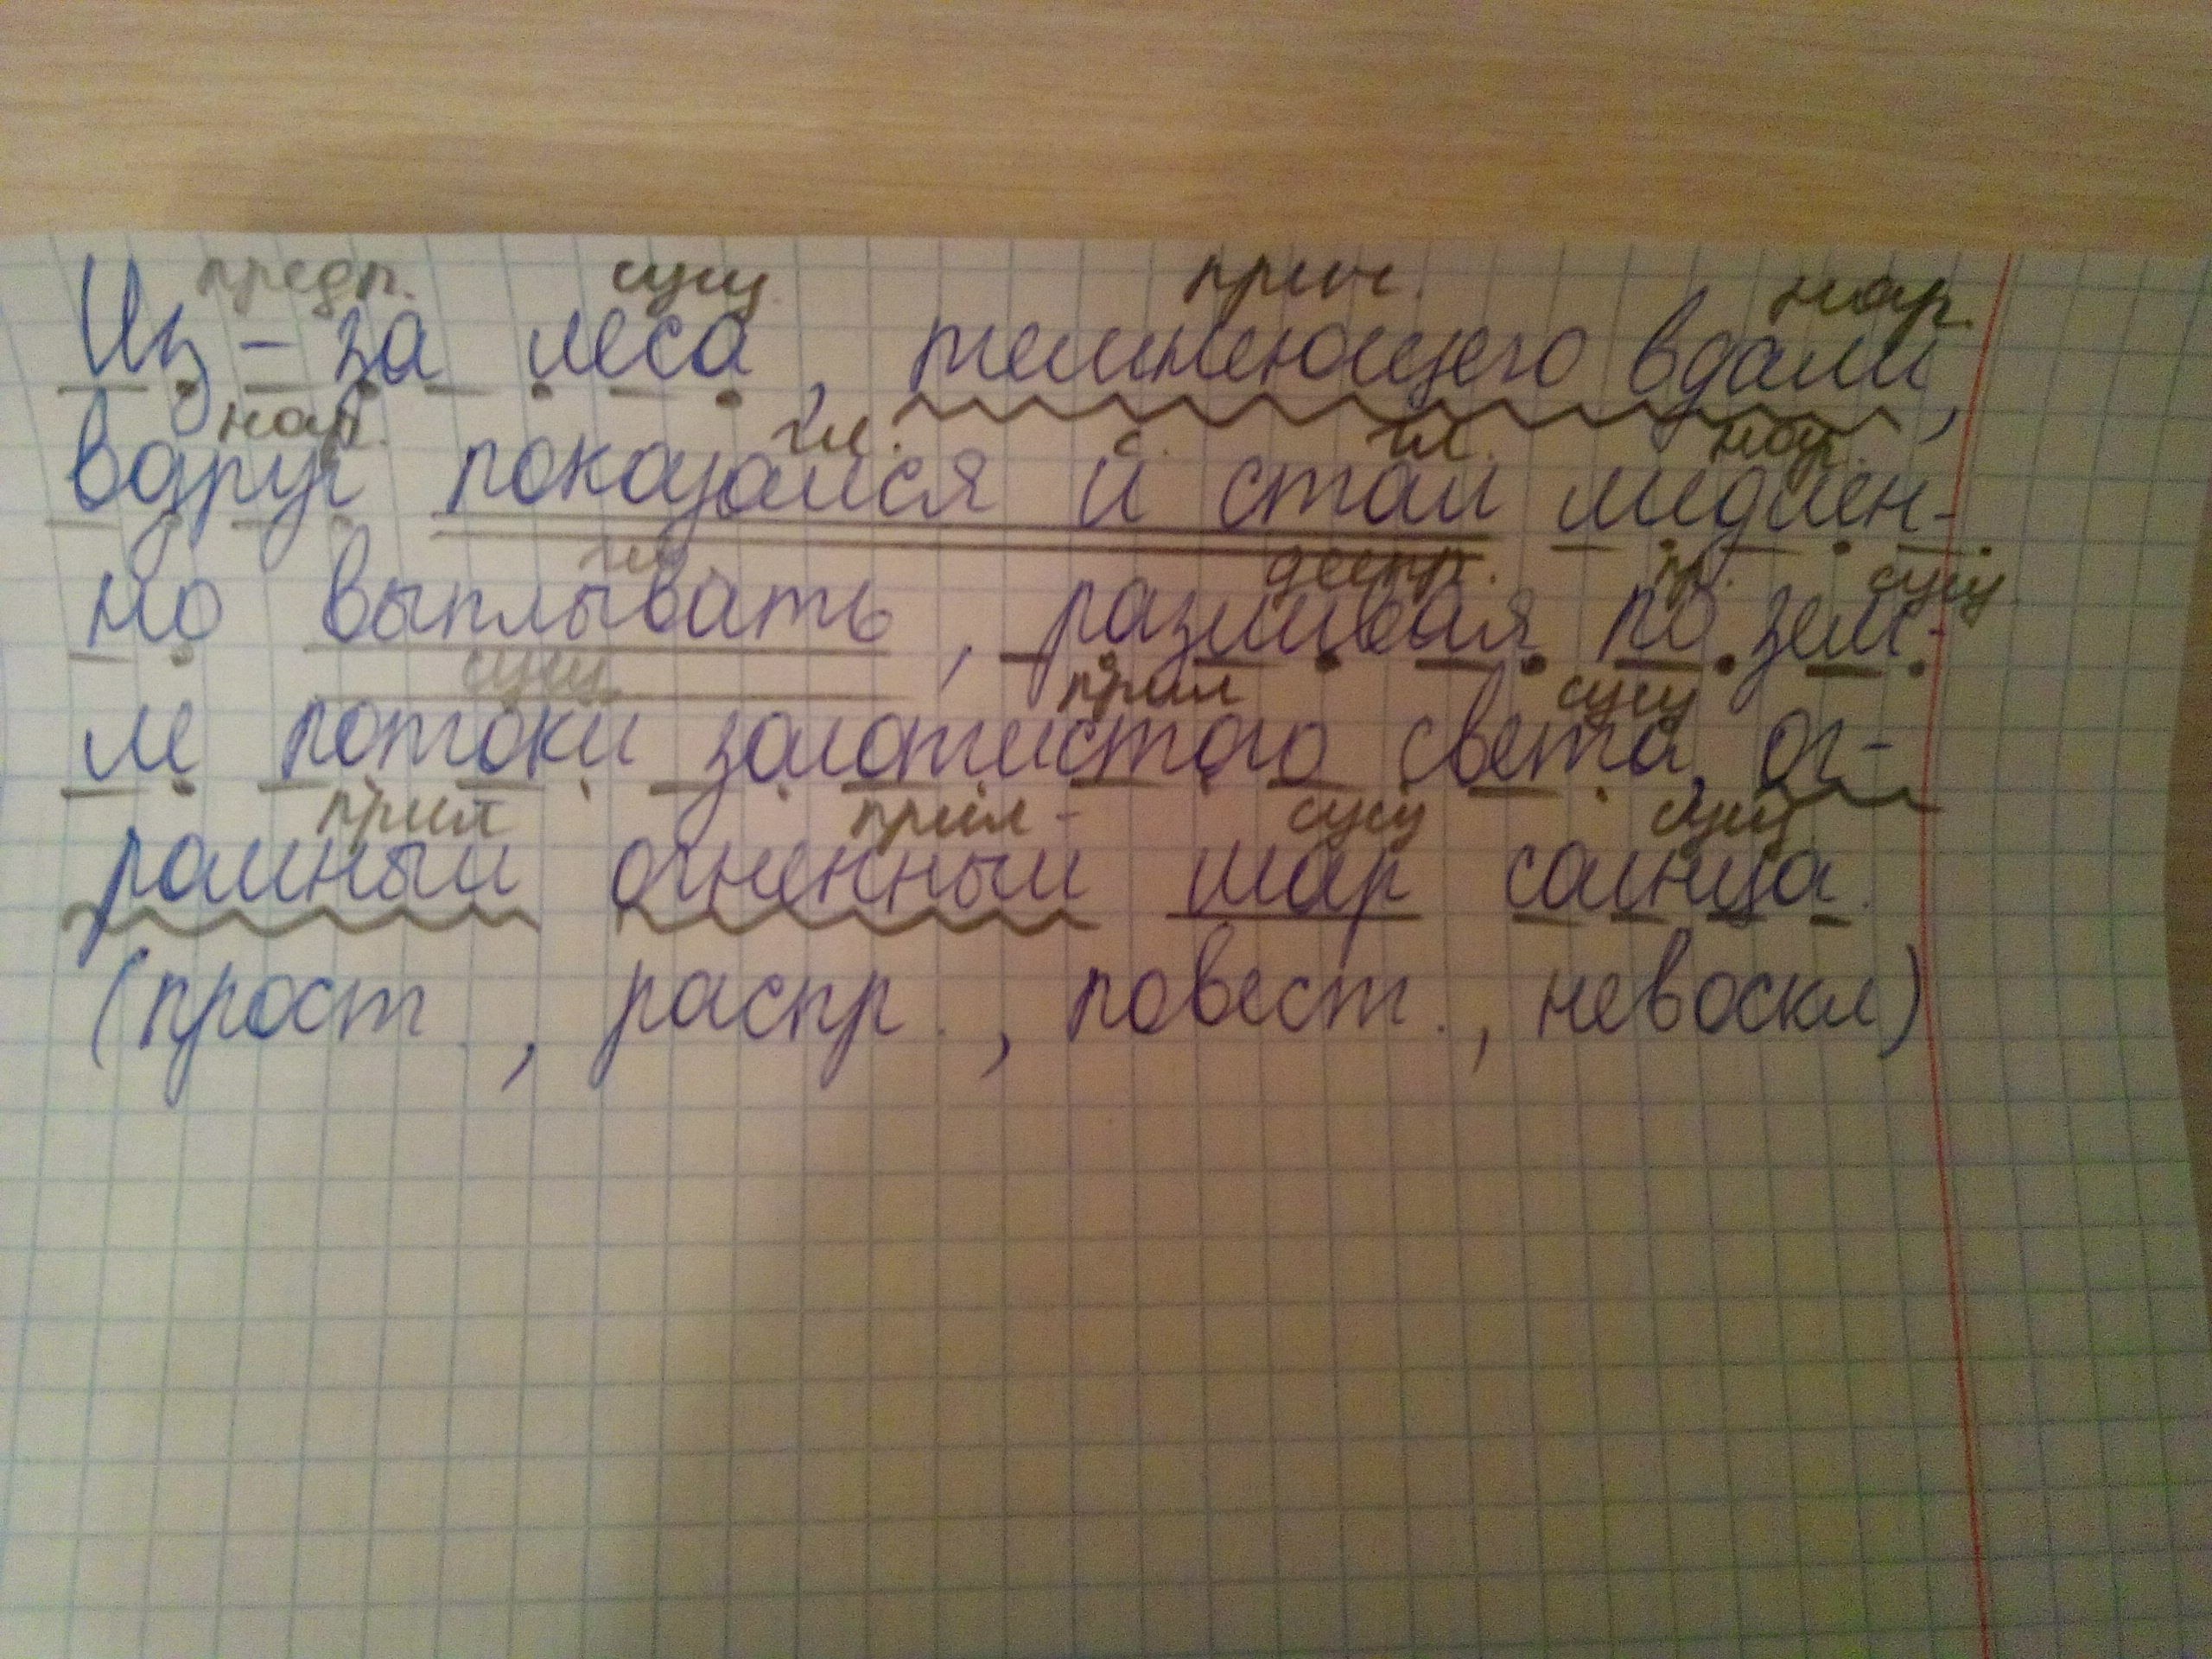 предп. сущ. прич. нар.
Из-за леса, темнеющего вдали,
нар. гл. с. гл. нар.
вдруг показался и стал медлен-
гл. деепр. п. сущ.
но выплывать, разливая по зем-
сущ. прил сущ
ле потоки золотистого света, ог-
прил прил- сущ сущ
ромный огненный шар солнца.
(прост., распр., повест., невоскл)